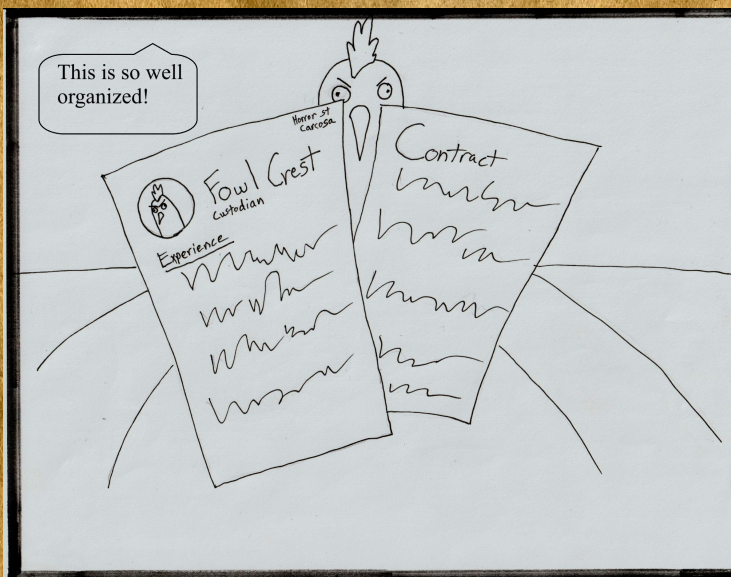 This is so well
organized!
Horror st
Carcosa
Fowl Crest
Custodian
Experience
Contract